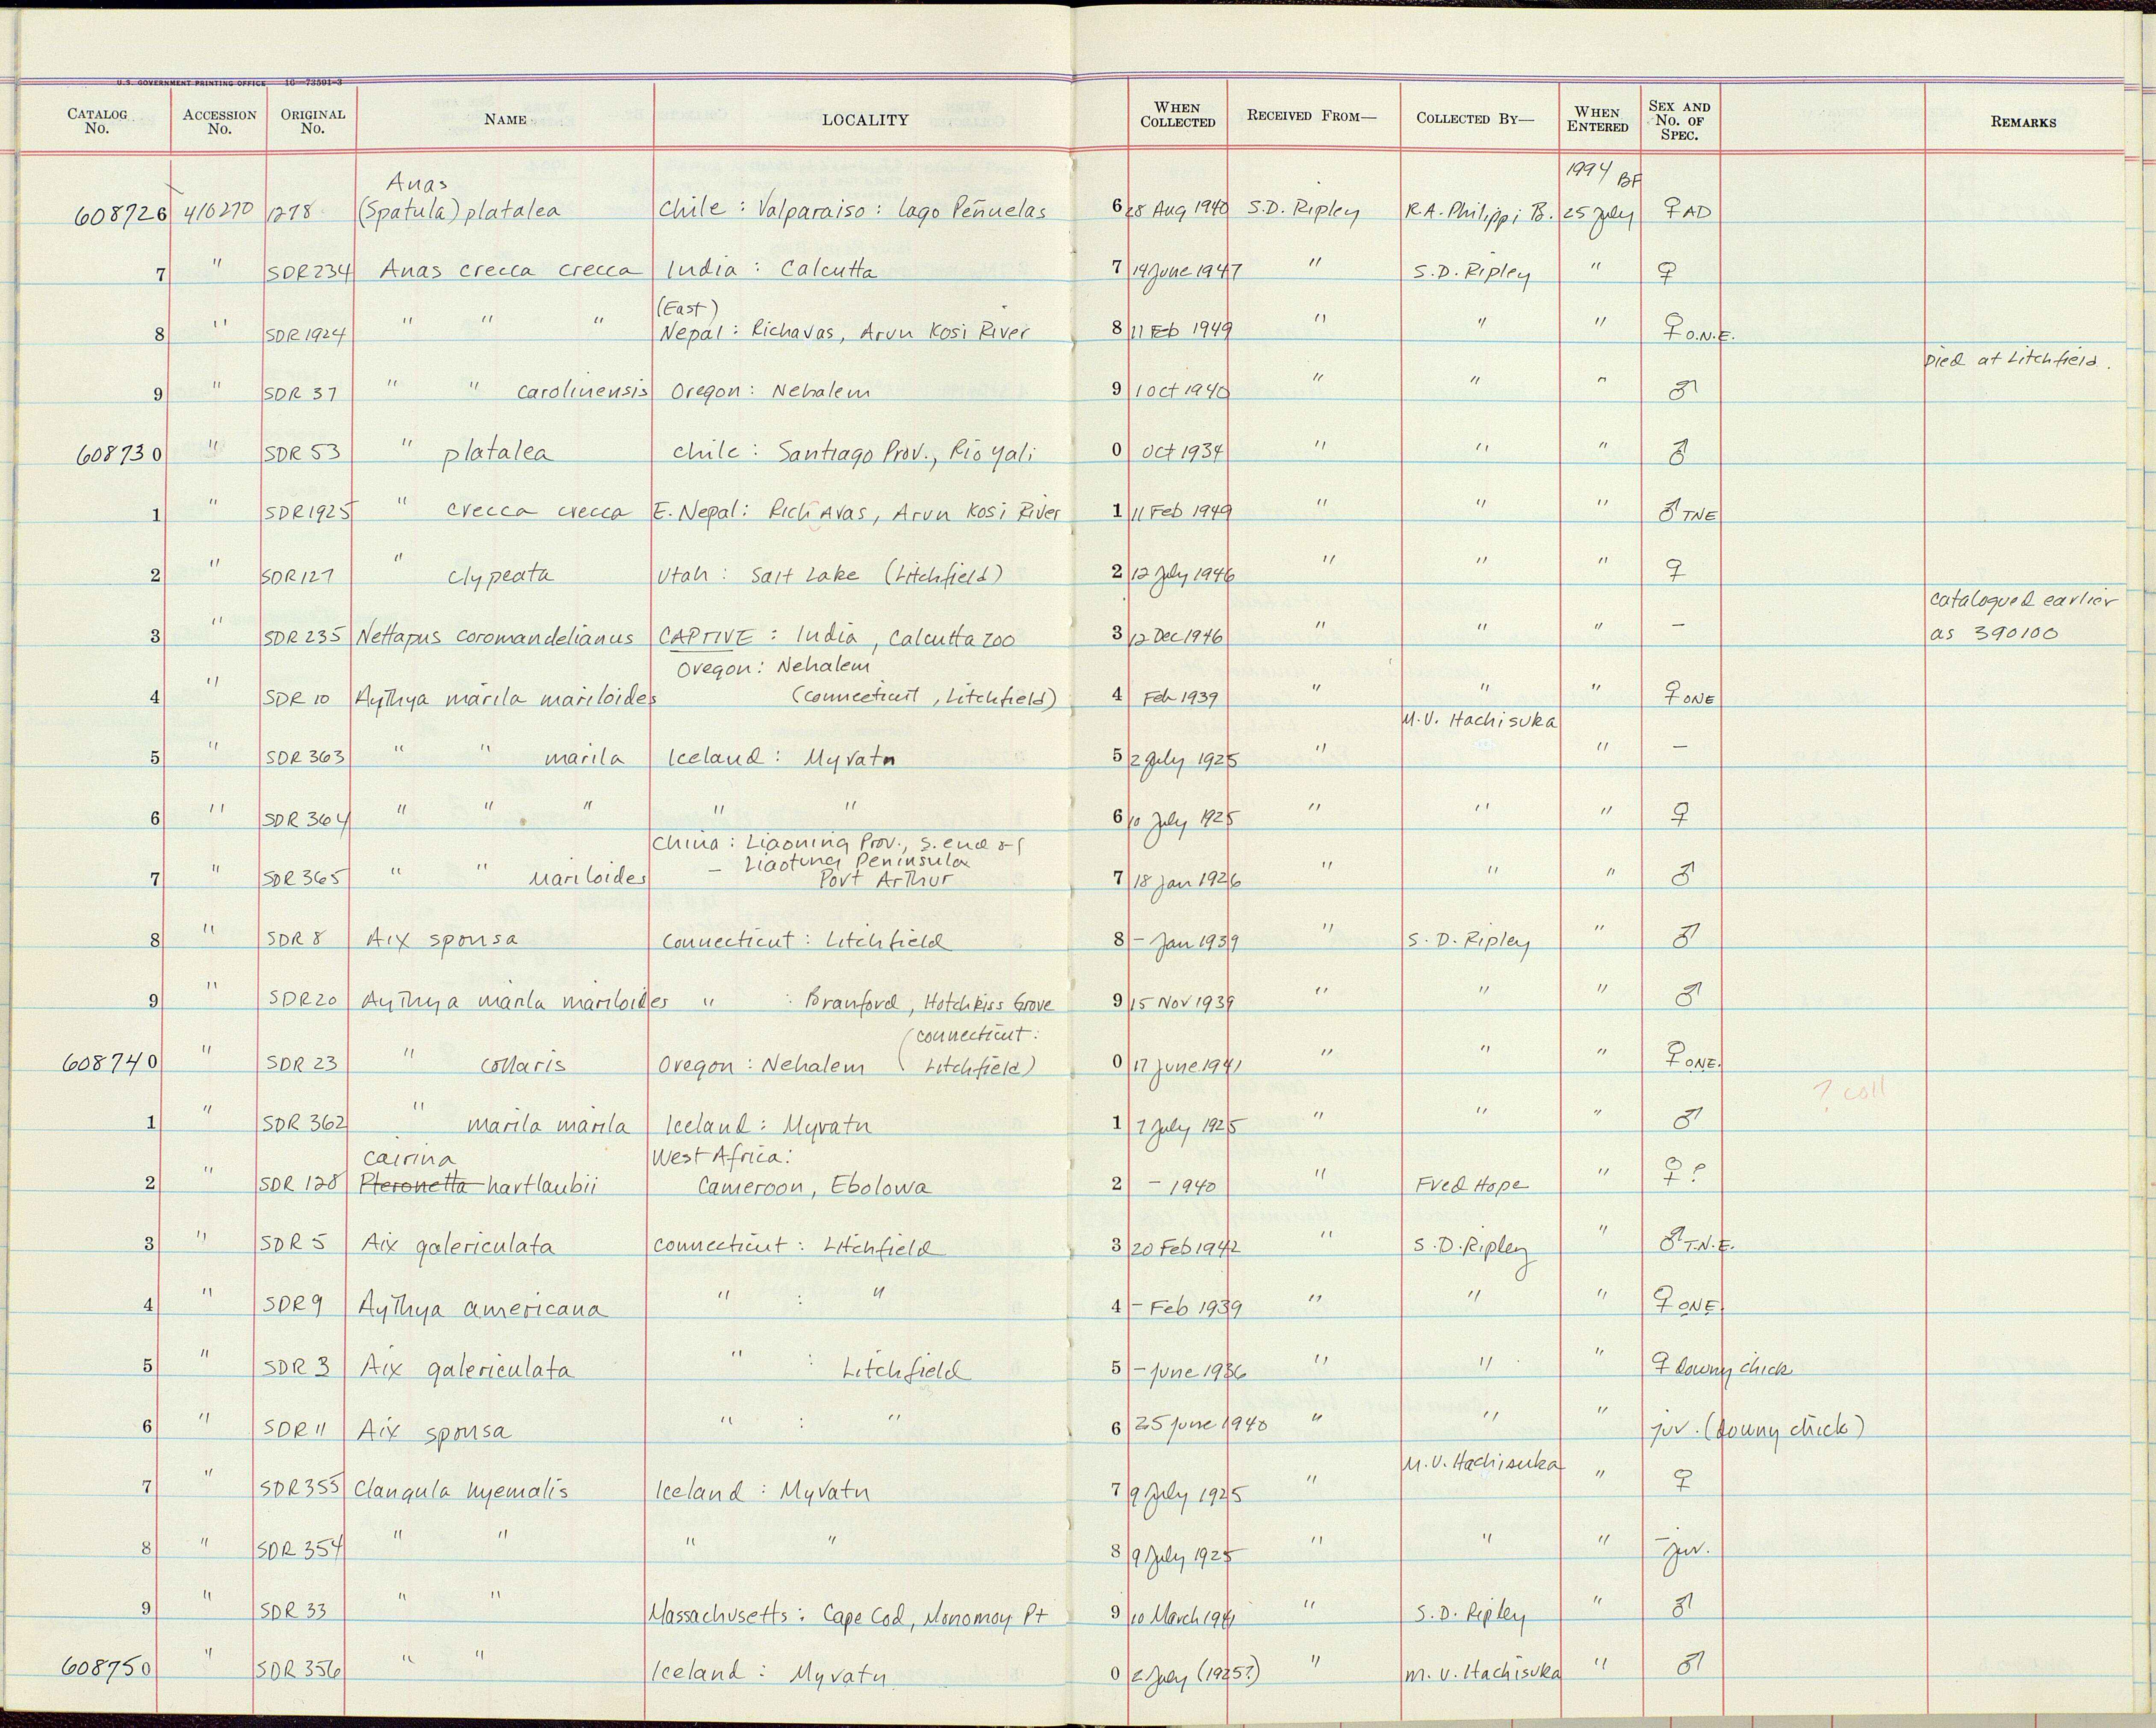 U.S. GOVERNMENT PRINTING OFFICE 16—73501-3
CATALOG No. ACCESSION No. ORIGINAL No. NAME LOCALITY WHEN COLLECTED RECEIVED FROM— COLLECTED BY— WHEN ENTERED SEX AND No. OF SPEC. REMARKS
1994 BF
Anas
608726 416270 1278 (Spatula) platalea Chile : Valparaiso : Lago Peñuelas 6 28 Aug 1940 S.D. Ripley R.A. Philippi B. 25 July ♀ AD
7 " SDR234 Anas crecca crecca India : Calcutta 7 14 June 1947 " S.D. Ripley " ♀
(East)
8 " SDR1924 " " " Nepal : Richavas, Arun Kosi River 8 11 Feb 1949 " " " ♀ O.N.E.
Died at Litchfield.
9 " SDR 37 " " carolinensis Oregon : Nehalem 9 1 Oct 1940 " " " ♂
608730 " SDR 53 " platalea Chile : Santiago Prov., Rio Yali 0 Oct 1934 " " " ♂
1 " SDR1925 " crecca crecca E. Nepal : Rich Avas, Arun Kosi River 1 11 Feb 1949 " " " ♂ TNE
2 " SDR127 " clypeata Utah : Salt Lake (Litchfield) 2 12 July 1946 " " " ♀
catalogued earlier
3 " SDR 235 Nettapus coromandelianus CAPTIVE : India, Calcutta Zoo 3 12 Dec 1946 " " " — as 390100
Oregon : Nehalem
4 " SDR 10 Aythya marila mariloides (Connecticut, Litchfield) 4 Feb 1939 " " " ♀ ONE
M.U. Hachisuka
5 " SDR 363 " " marila Iceland : Myvatn 5 2 July 1925 " " —
6 " SDR 364 " " " " " 6 10 July 1925 " " " ♀
China : Liaoning Prov., S. end of
– Liaotung Peninsula
7 " SDR 365 " " mariloides Port Arthur 7 18 Jan 1926 " " " ♂
8 " SDR 8 Aix sponsa Connecticut : Litchfield 8 – Jan 1939 " S. D. Ripley " ♂
9 " SDR20 Aythya marila mariloides " : Branford, Hotchkiss Grove 9 15 Nov 1939 " " " ♂
(connecticut :
608740 " SDR 23 " collaris Oregon : Nehalem Litchfield) 0 17 June 1941 " " " ♀ ONE.
? coll
1 " SDR 362 " marila marila Iceland : Myvatn 1 7 July 1925 " " " ♂
Cairina West Africa :
2 " SDR 128 Pteronetta hartlaubii Cameroon, Ebolowa 2 – 1940 " Fred Hope " ♀ ?
3 " SDR 5 Aix galericulata Connecticut : Litchfield 3 20 Feb 1942 " S.D. Ripley " ♂ T.N.E.
4 " SDR9 Aythya americana " : " 4 – Feb 1939 " " " ♀ ONE
5 " SDR 3 Aix galericulata " : Litchfield 5 – June 1936 " " " ♀ downy chick
6 " SDR 11 Aix sponsa " : " 6 25 June 1940 " " " juv. (downy chick)
M.U. Hachisuka
7 " SDR355 Clangula hyemalis Iceland : Myvatn 7 9 July 1925 " " ♀
8 " SDR 354 " " " " 8 9 July 1925 " " " – juv.
9 " SDR 33 " " Massachusetts : Cape Cod, Monomoy Pt 9 10 March 1941 " S. D. Ripley " ♂
608750 " SDR 356 " " Iceland : Myvatn 0 2 July (1925?) " M. U. Hachisuka " ♂